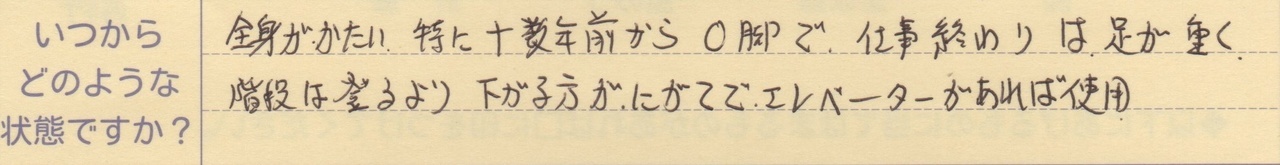 いつから
どのような
状態ですか?
全身がかたい 特に十数年前からO脚で、仕事終わりは足が重く、
階段は登るより下がる方が、にがてで、エレベーターがあれば使用